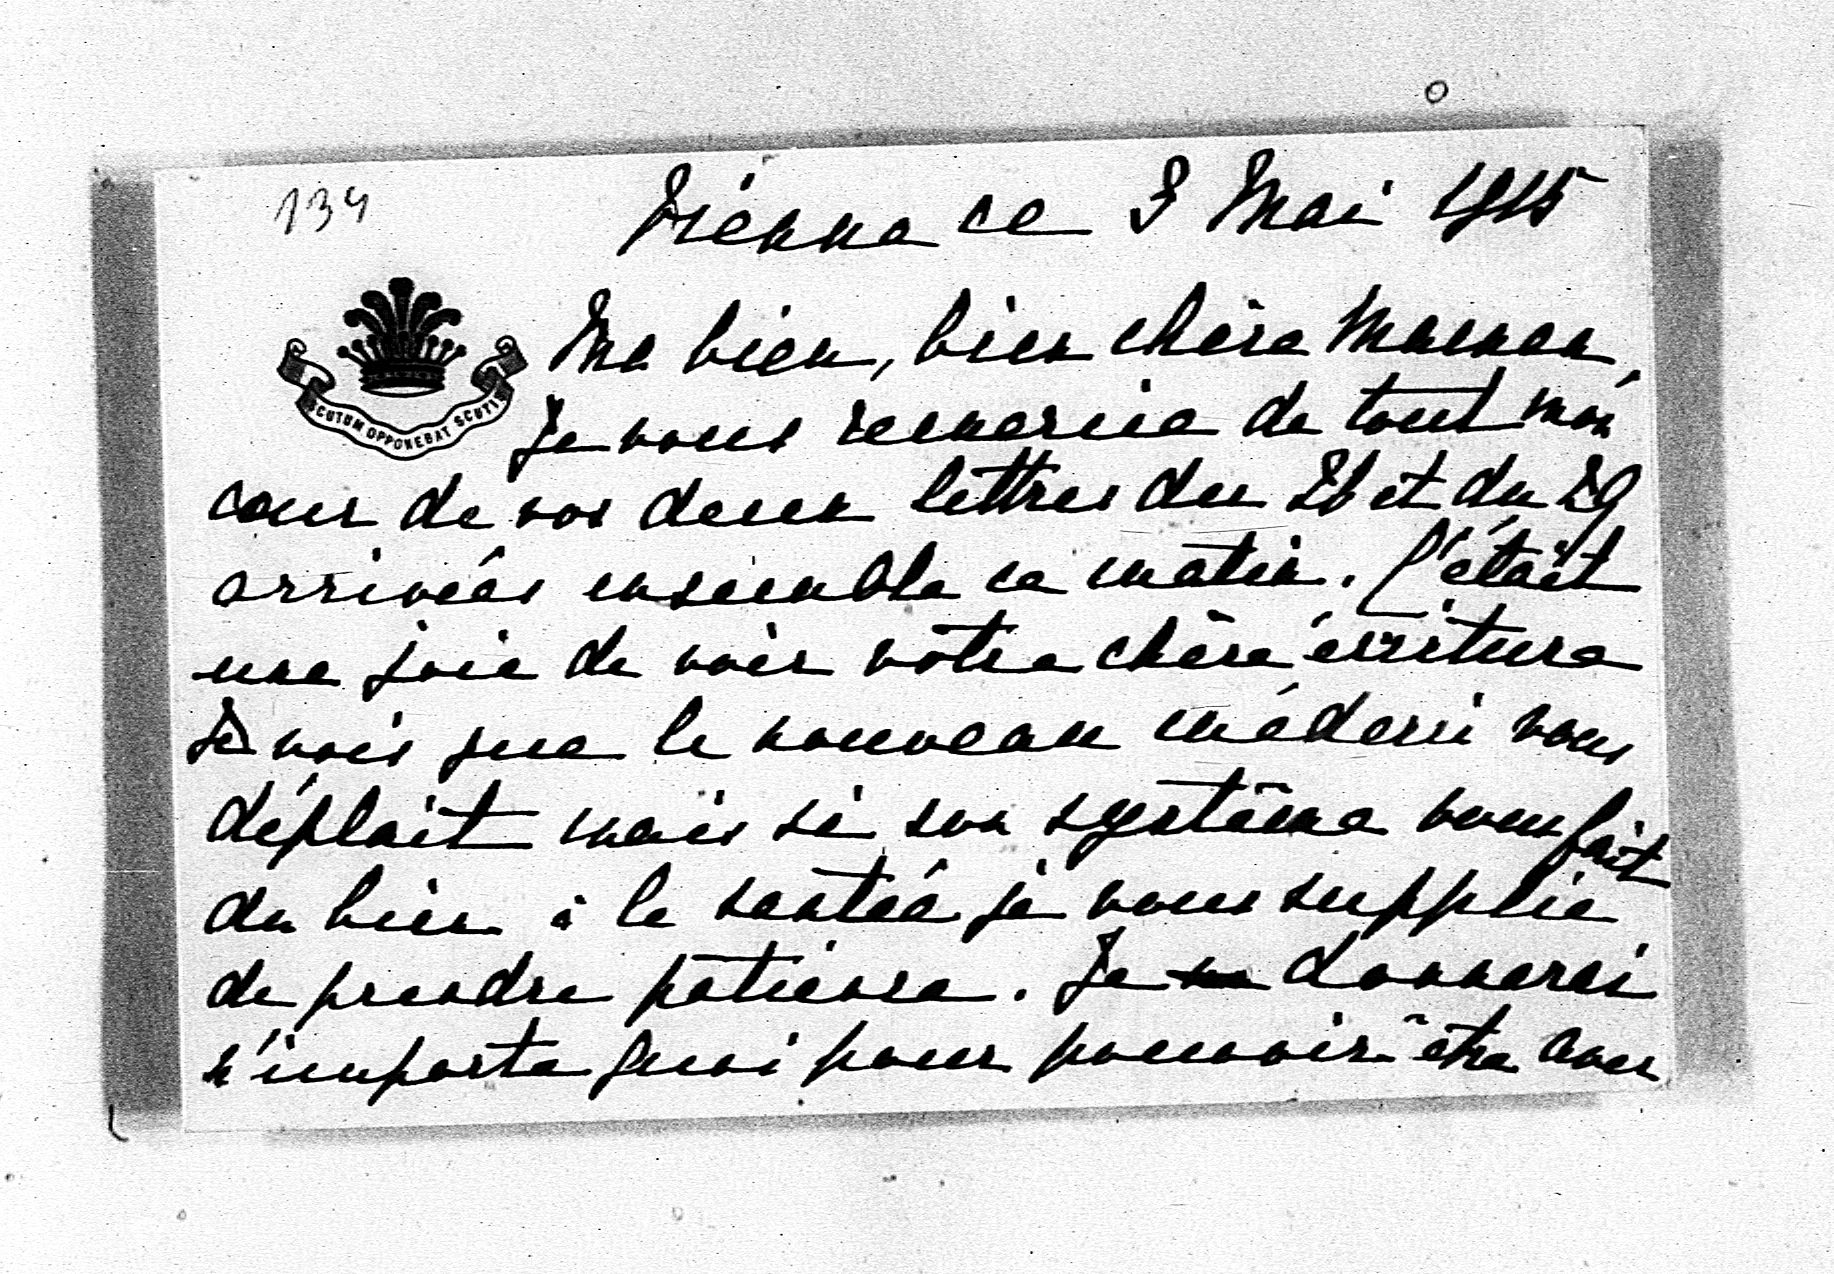 134
Vienne ce 3 Mai 1915
SCUTUM OPPONEBAT SCUTIS
Ma bien, bien chère Maman,
Je vous remercie de tout mon
cœur de vos deux lettres du 26 et du 29
arrivées ensemble ce matin. C'était
une joie de voir votre chère écriture
Je vois que le nouveau médecin vous
déplait mais si son système vous fait
du bien à la santé je vous supplie
de prendre patience. Je donnerai
n'importe quoi pour pouvoir être avec